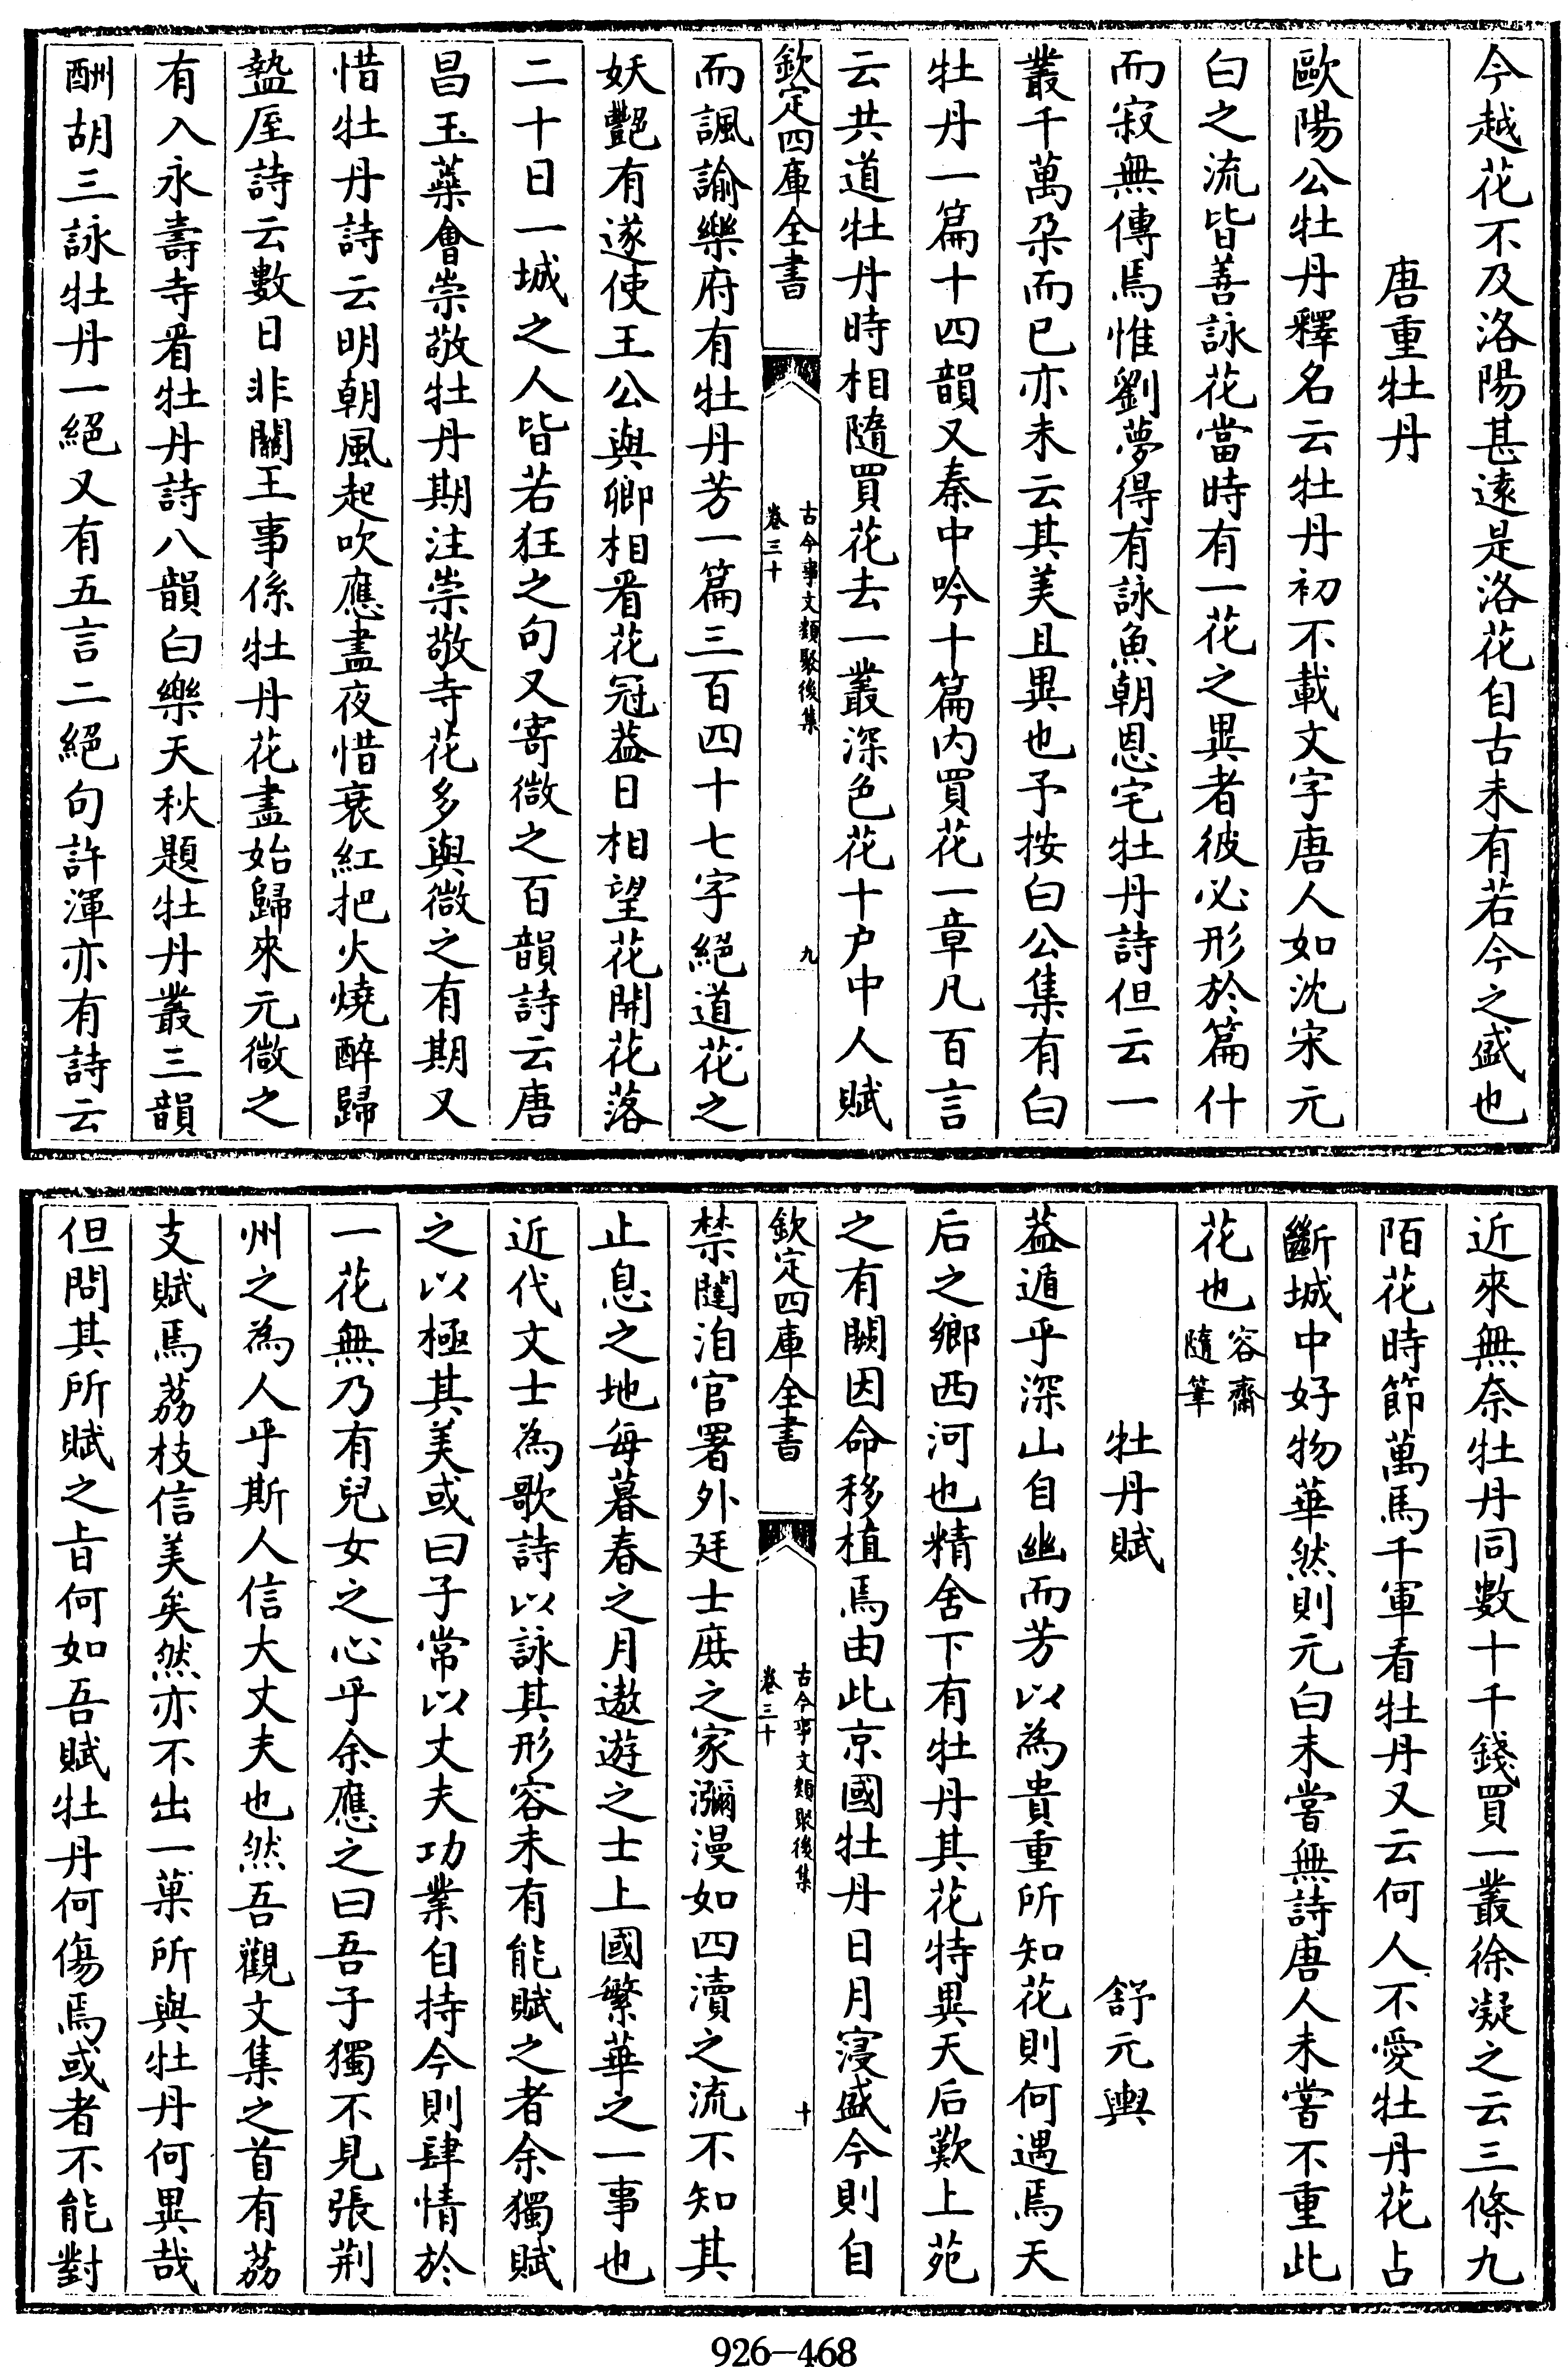 今越花不及洛陽甚遠是洛花自古未有若今之盛也
唐重牡丹
歐陽公牡丹釋名云牡丹初不載文字唐人如沈宋元
白之流皆善詠花當時有一花之異者彼必形於篇什
而寂無傳焉惟劉夢得有詠魚朝恩宅牡丹詩但云一
叢千萬朶而已亦未云其美且異也予按白公集有白
牡丹一篇十四韻又秦中吟十篇内買花一章凡百言
云共道牡丹時相隨買花去一叢深色花十户中人賦
欽定四庫全書
古今事文類聚後集
卷三十
九
而諷諭樂府有牡丹芳一篇三百四十七字絕道花之
妖艷有遂使王公與卿相看花冠葢日相望花開花落
二十日一城之人皆若狂之句又寄微之百韻詩云唐
昌玉蘂會崇敬牡丹期注崇敬寺花多與微之有期又
惜牡丹詩云明朝風起吹應盡夜惜衰紅把火燒醉歸
盩厔詩云數日非關王事係牡丹花盡始歸來元微之
有入永壽寺看牡丹詩八韻白樂天秋題牡丹叢三韻
酬胡三詠牡丹一絕又有五言二絕句許渾亦有詩云
近來無奈牡丹同數十千錢買一叢徐凝之云三條九
陌花時節萬馬千軍看牡丹又云何人不愛牡丹花占
斷城中好物華然則元白未嘗無詩唐人未嘗不重此
花也容齋隨筆
牡丹賦 舒元輿
葢遁乎深山自幽而芳以為貴重所知花則何遇焉天
后之鄉西河也精舍下有牡丹其花特異天后歎上苑
之有闕因命移植焉由此京國牡丹日月寖盛今則自
欽定四庫全書
古今事文類聚後集
卷三十
十
禁闥洎官署外延士庶之家瀰漫如四瀆之流不知其
止息之地每暮春之月遨遊之士上國繁華之一事也
近代文士為歌詩以詠其形容未有能賦之者余獨賦
之以極其美或曰子常以丈夫功業自持今則肆情於
一花無乃有兒女之心乎余應之曰吾子獨不見張荆
州之為人乎斯人信大丈夫也然吾觀文集之首有荔
支賦焉荔枝信美矣然亦不出一菓所與牡丹何異哉
但問其所賦之旨何如吾賦牡丹何傷焉或者不能對
926-468